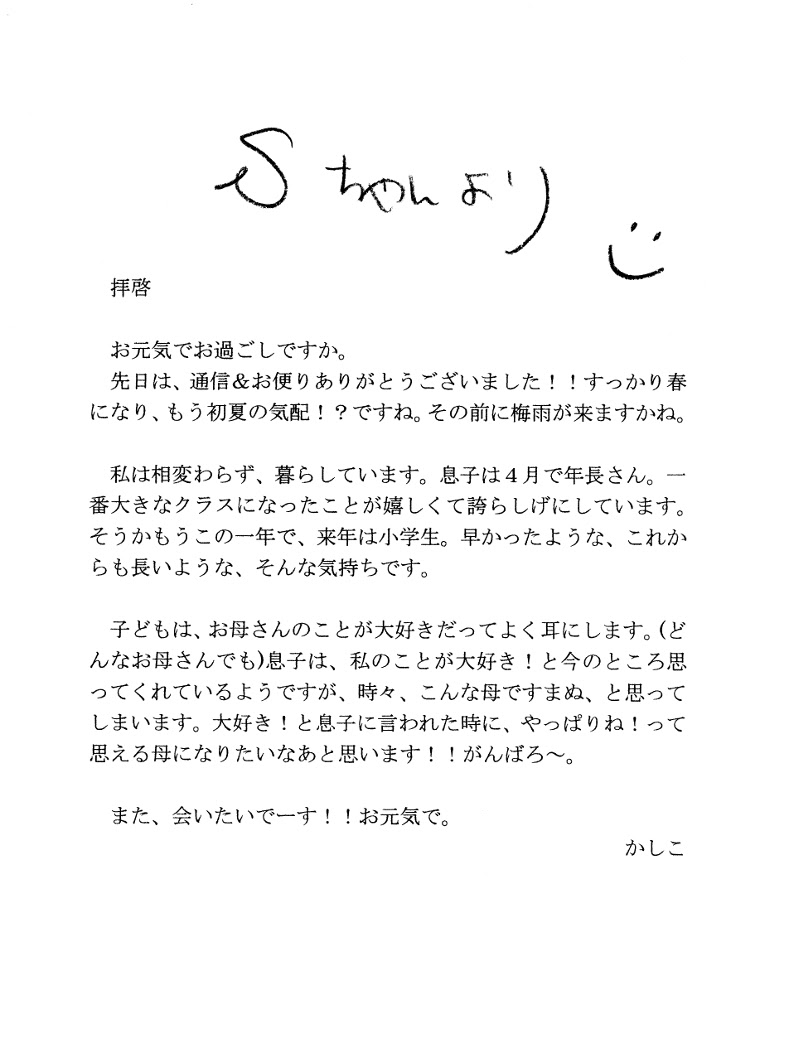 Sちゃんより
拝啓
お元気でお過ごしですか。
先日は、通信&お便りありがとうございました！！すっかり春
になり、もう初夏の気配！？ですね。その前に梅雨が来ますかね。
私は相変わらず、暮らしています。息子は４月で年長さん。一
番大きなクラスになったことが嬉しくて誇らしげにしています。
そうかもうこの一年で、来年は小学生。早かったような、これか
らも長いような、そんな気持ちです。
子どもは、お母さんのことが大好きだってよく耳にします。(ど
んなお母さんでも)息子は、私のことが大好き！と今のところ思
ってくれているようですが、時々、こんな母ですまぬ、と思って
しまいます。大好き！と息子に言われた時に、やっぱりね！って
思える母になりたいなあと思います！！がんばろ～。
また、会いたいでーす！！お元気で。
かしこ